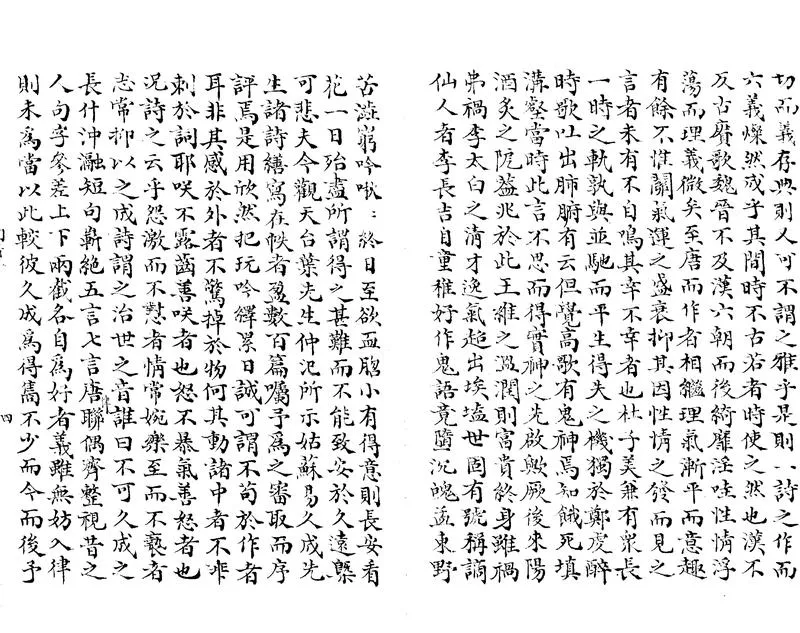 切而義存興則人可不謂之雅乎是則一詩之作而
六義燦然或乎其間時不古若者時使之然也漢不
及古賡歌魏晉不及漢六朝而後綺靡淫哇性情浮
蕩而理義微矣至唐而作者相繼理氣漸平而意趣
有餘不惟關氣運之盛衰抑其因性情之發而見之
言者未有不自鳴其幸不幸者也杜子美兼有衆長
一時之軌孰與並馳而平生得失之機獨於鄭虔醉
時歌吐出肺腑有云但覺高歌有鬼神焉知餓死填
溝壑當時此言不思而得實神之先啟歟厥後耒陽
酒炙之阨葢兆於此王維之温潤則富貴終身雖禍
弗禍李太白之清才逸氣超出埃𡏖世固有號稱謫
仙人者李長吉自重稚好作鬼語竟墮沉魄孟東野
苦澁窮吟啾啾終日至欲盃膓小有得意則長安看
花一日殆盡所謂得之甚難而不能致安於久遠槩
可悲夫今觀天台葉先生仲汜所示姑蘇易久成先
生諸詩繕寫在帙者盈數百篇囑予為之審取而序
評焉是用欣然把玩吟繹累日誠可謂不苟於作者
耳非其感於外者不驚掉於物何其動諸中者不非
刺於詞耶咲不露齒善咲者也怒不暴氣善怒者也
況詩之云乎怨激而不懟者情常婉樂至而不䙝者
志常抑以之成詩謂之治世之音誰曰不可久成之
長什沖瀜短句嶄絶五言七言唐聯偶齊整視昔之
人句字參差上下兩截各自為好者義雖無妨入律
則未為當以此較彼久成為得雋不少而今而後予
四